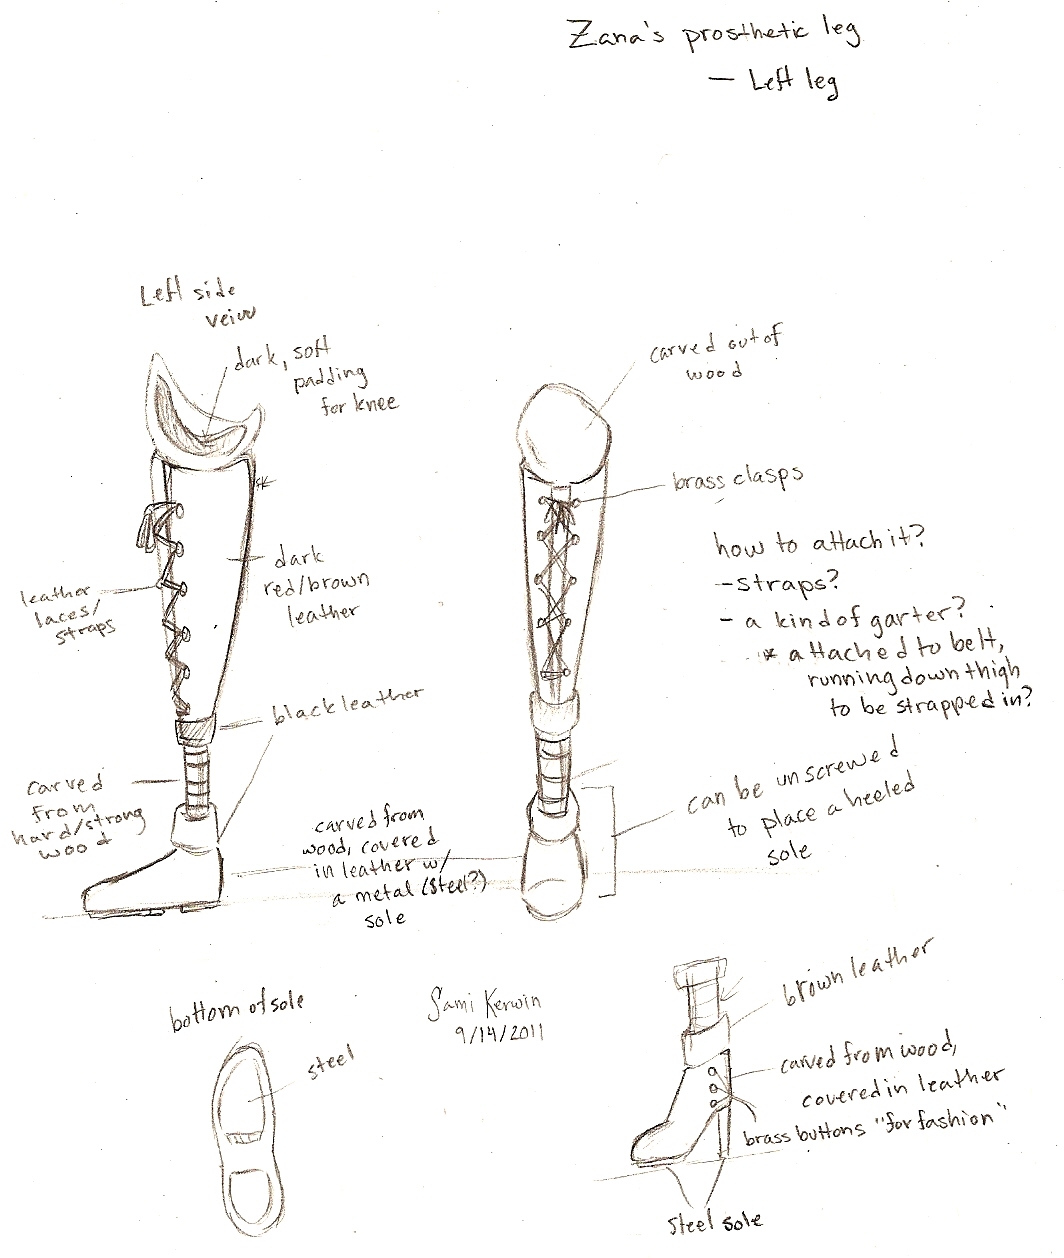 Zana's prosthetic leg
— Left leg
Left side
veiw
dark, soft
padding
for knee
carved out of
wood
brass clasps
*
dark
red/brown
leather
leather
laces/
straps
how to attach it?
- straps?
- a kind of garter?
* attached to belt,
running down thigh
to be strapped in?
black leather
carved
from
hard/strong
wood
carved from
wood, covered
in leather w/
a metal (steel?)
sole
can be unscrewed
to place a heeled
sole
bottom of sole
steel
Sami Kerwin
9/14/2011
brown leather
carved from wood,
covered in leather
brass buttons "for fashion"
steel sole